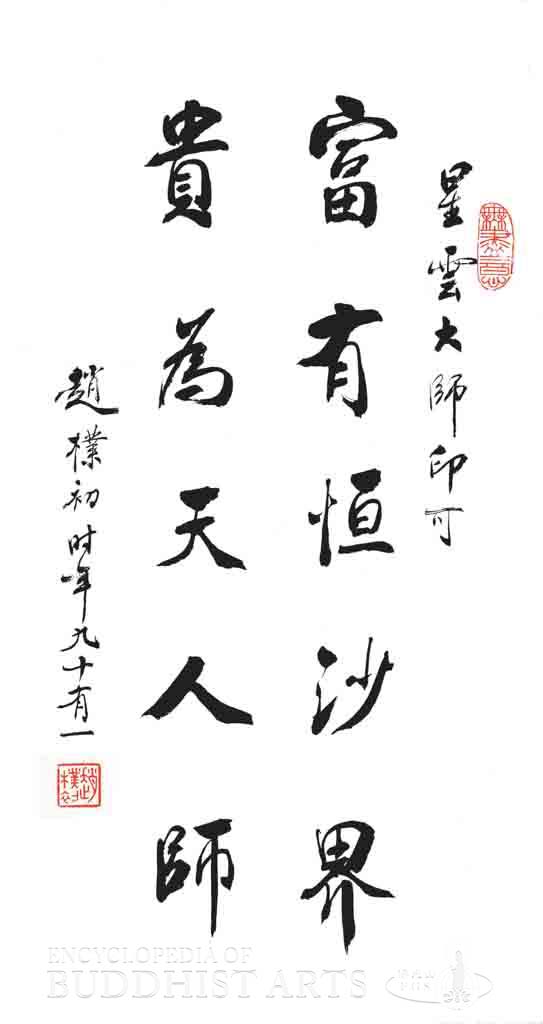 星雲大師印可
富有恒沙界
貴為天人師
趙樸初时年九十有一
趙樸初
ENCYCLOPEDIA OF
BUDDHIST ARTS